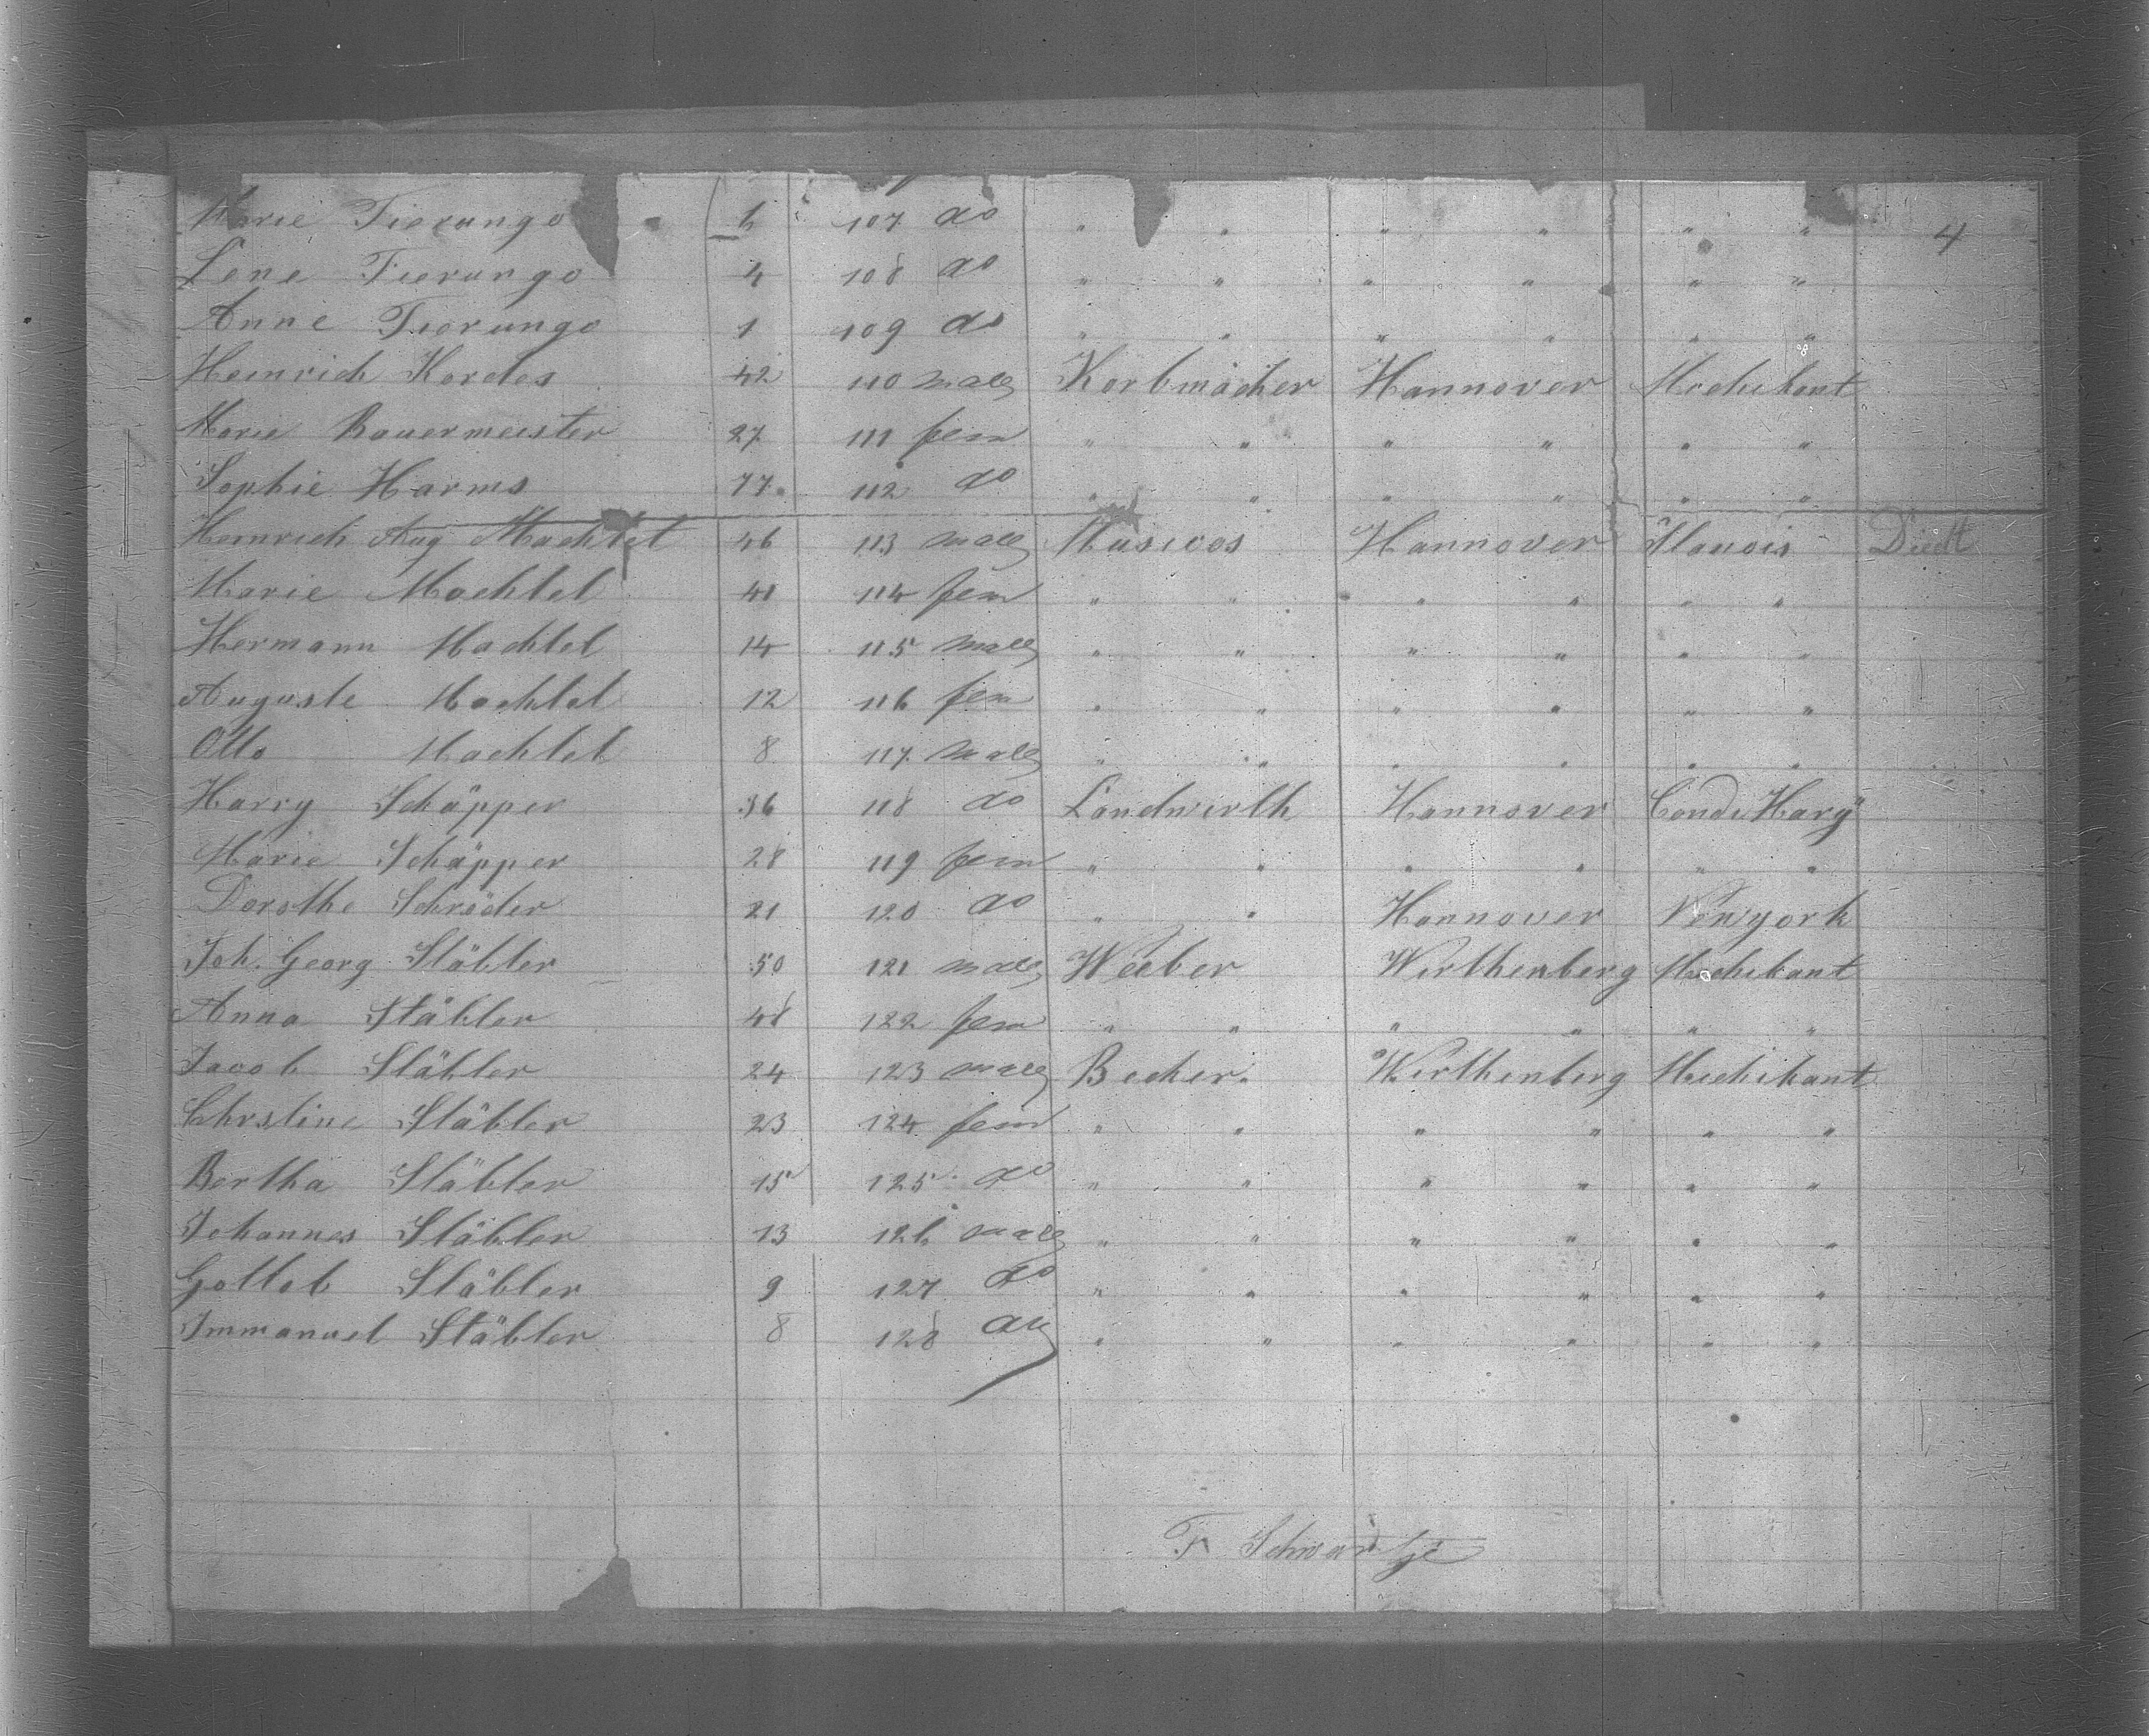 Marie Fierungo 6 107 do " " " " " " 4
Lene Fierungo 4 108 do " " " " " "
Anne Fierungo 1 109 do " " " " " "
Heinrich Kordes 42 110 male Korbmächer Hannover Mechikant
Marie Bauermeister 27 111 fem " " " " " "
Sophie Harms 77 112 do " " " " " "
Heinrich Aug Machtel 46 113 male Musicos Hannover Ilanois Diedt
Marie Machtel 41 114 fem " " " " " "
Hermann Machtel 14 115 male " " " " " "
Auguste Machtel 12 116 fem " " " " " "
Otto Machtel 8 117 male " " " " " "
Harry Schäpper 36 118 do Landwirth Hannover
Marie Schäpper 28 119 fem " " " " " "
Dorothe Schröder 21 120 do " " Hannover Newyork
Joh. Georg Stäbler 50 121 male Weeber Wirthenberg Mechikant
Anna Stäbler 48 122 fem " " " " " "
Jacob Stäbler 24 123 male Becker. Wirthenberg Mechikant
Chrstine Stäbler 23 124 fem " " " " " "
Bertha Stäbler 15 125 do " " " " " "
Johannes Stäbler 13 126 male " " " " " "
Gottlob Stäbler 9 127 do " " " " " "
Immanuel Stäbler 8 128 do " " " " " "
F. Schwartje